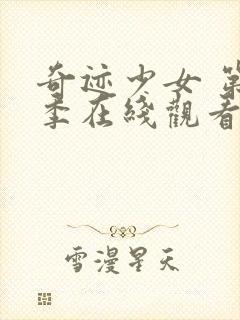 奇迹少女 第
季在綫觀看
雪漫星天